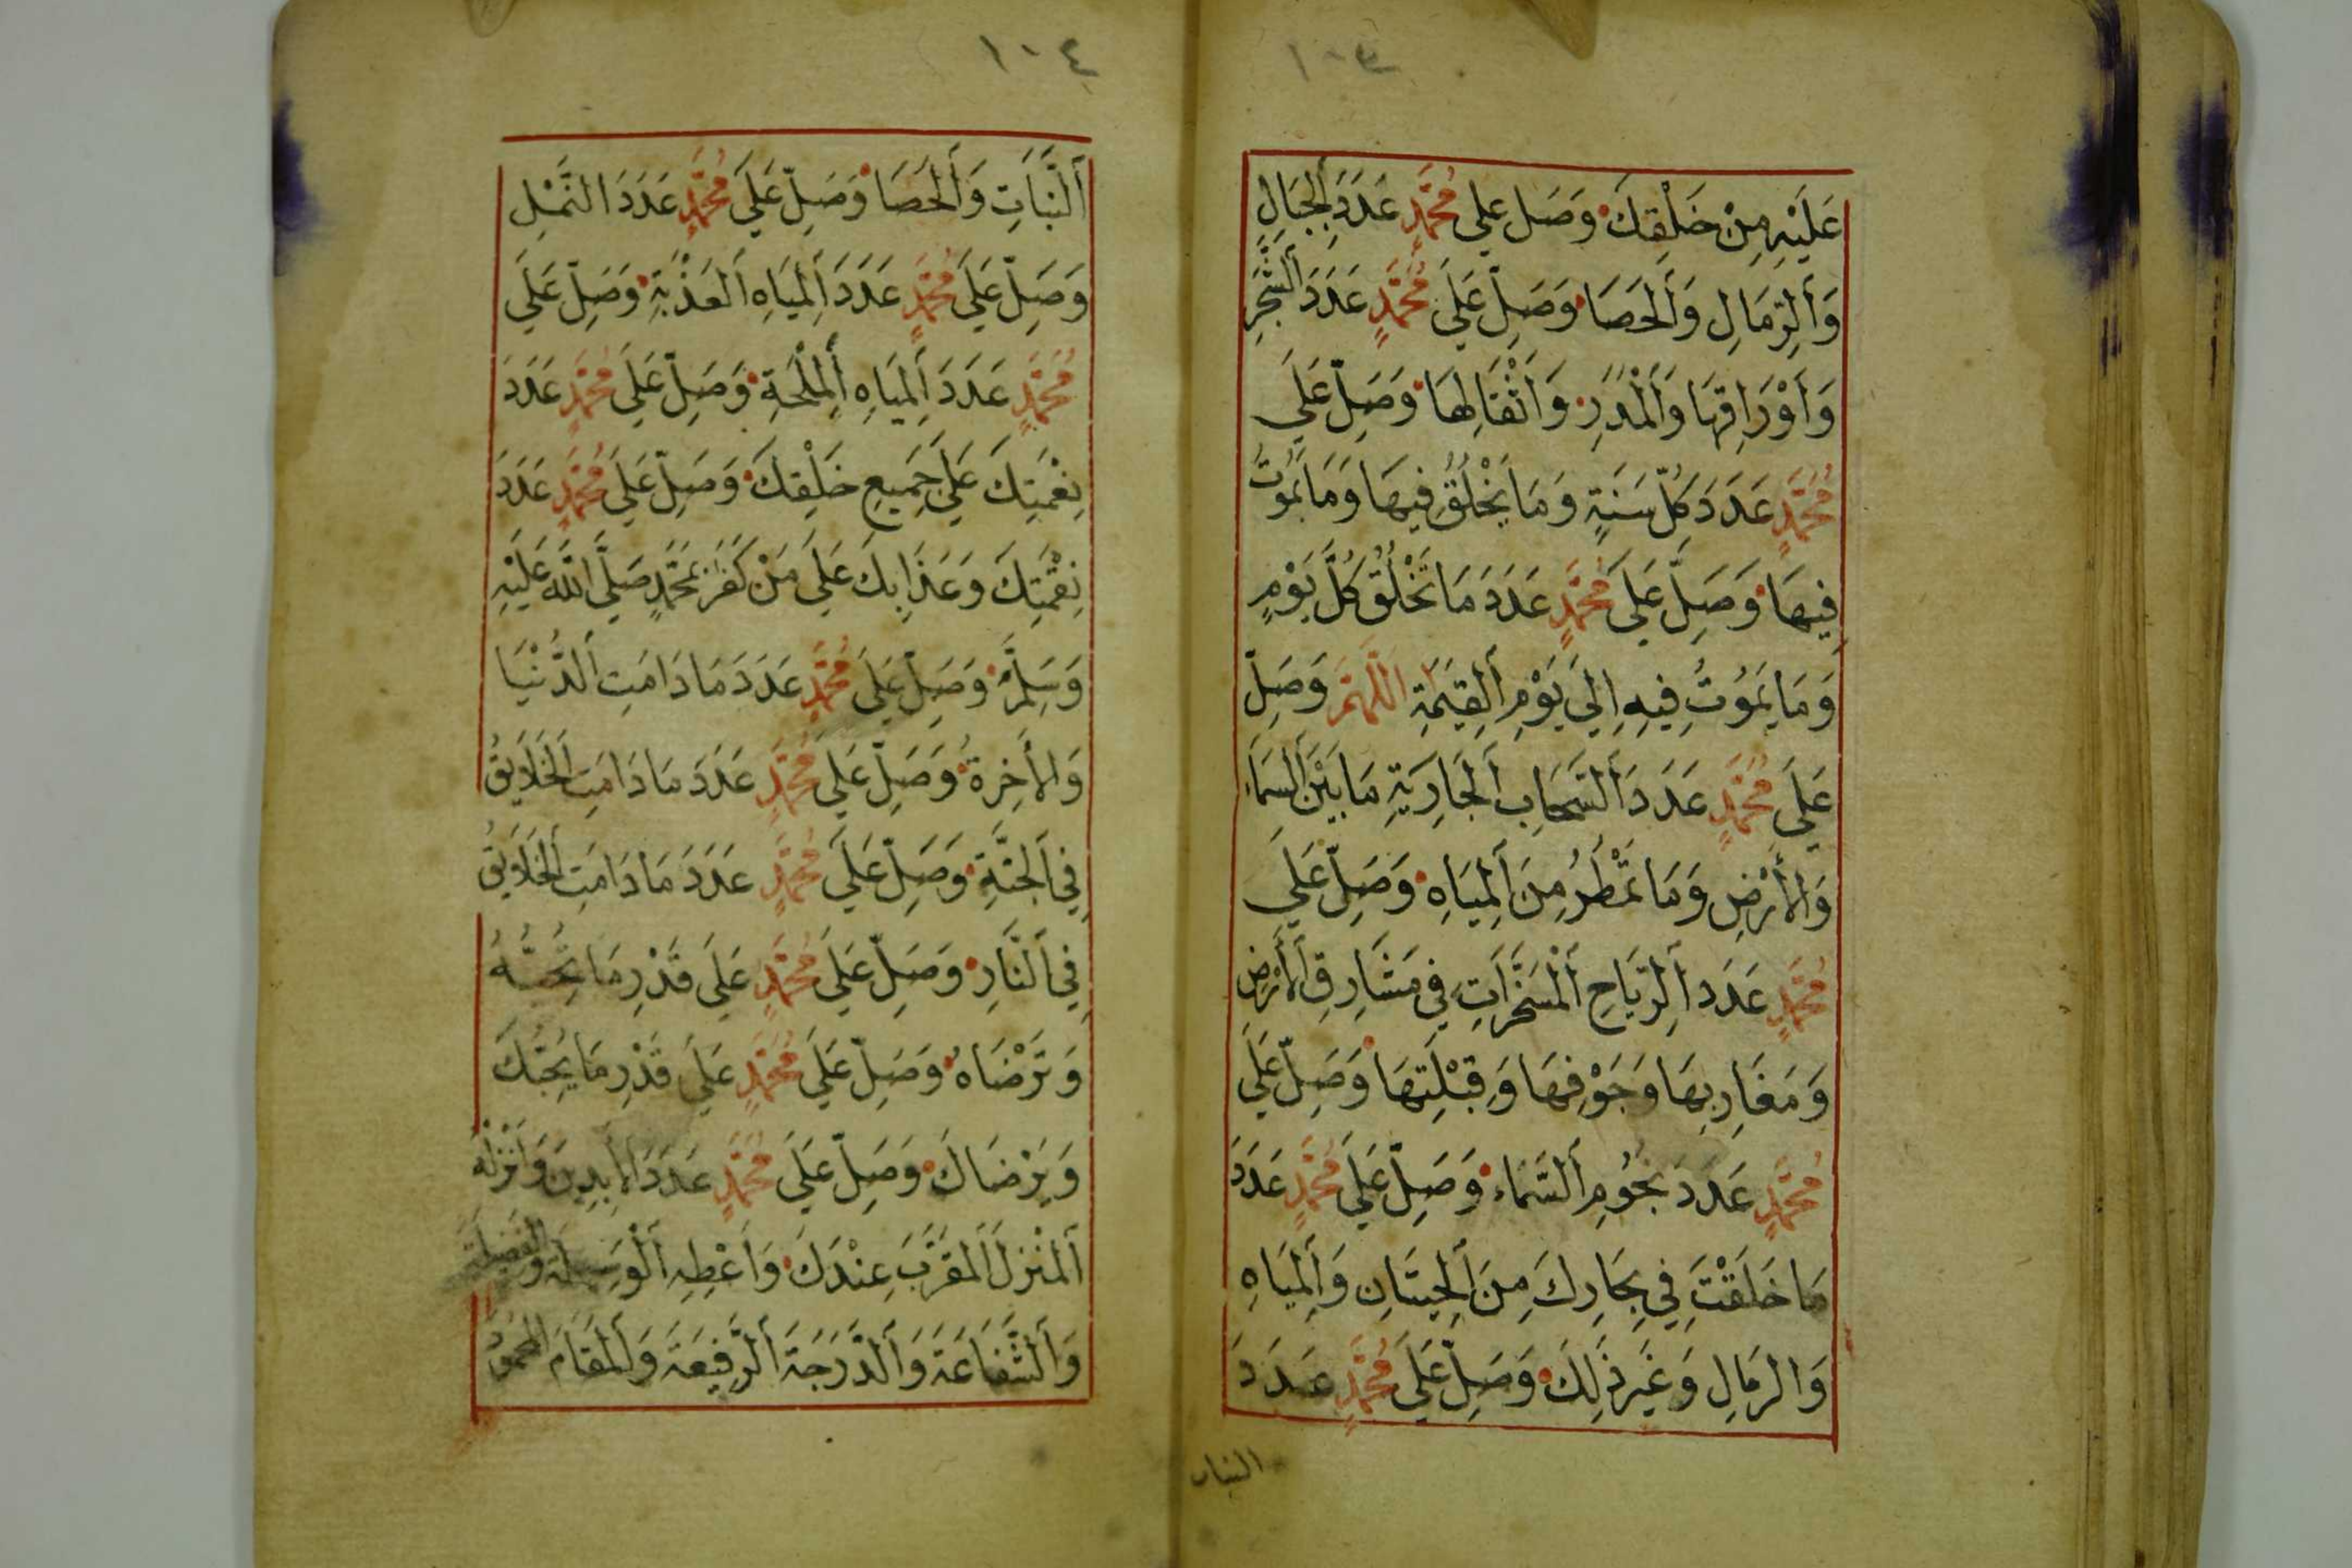 ١٠٣
عَلَيْهِ مِنْ خَلْقِكَ وَصَلِ عَلى مُحَمَّدٍ عَدَدَ أَلْجِبَالِ
وَأَلرِّمَالِ وَأَلْحَصَا وَصَلِّ عَلَى مُحَمَّدٍ عَدَدَ أَلشَّجَرِ
وَأَوْرَاقِهَا وَأَلْمَدَرِ وَأَثْقَالِهَا وَصَلِّ عَلَى
مُحَمَّدٍ عَدَدَ كُلِّ سَنَةٍ وَمَا يَخْلُقُ فِيهَا وَمَا يَمُوتُ
فِيهَا وَصَلِّ عَلَى مُحَمَّدٍ عَدَدَ مَا تَخْلُقُ كُلَّ يَوْمٍ
وَمَا يَمُوتُ فِيهِ إِلَى يَوْمِ أَلْقِيَمَةِ اللَّهُمَّ وَصَلِّ
عَلَى مُحَمَّدٍ عَدَدَ أَلسَّحَابِ أَلْجَارِيَةِ مَا بَيْنَ أَلسَّمَاءِ
وَالأَرْضِ وَمَا تَمْطُرُ مِنَ أَلْمِيَاهِ وَصَلِّ عَلَى
مُحَمَّدٍ عَدَدَ أَلرِّيَاحِ أَلْمُسَخَّرَاتِ فِي مَشَارِقِ أَلأَرْضِ
وَمَغَارِبِهَا وَجَوْفِهَا وَقِبْلَتِهَا وَصَلِّ عَلَى
مُحَمَّدٍ عَدَدَ نُجُومِ أَلسَّمَاءِ وَصَلِّ عَلَى مُحَمَّدٍ عَدَدَ
مَا خَلَقْتَ فِي بِحَارِكَ مِنَ أَلْحِيتَانِ وَأَلْمِيَاهِ
وَالرِمَالِ وَغَيْرِ ذَلِكَ وَصَلِّ عَلَى مُحَمَّدٍ عَدَدَ
النبات
١٠٤
أَلنَّبَاتِ وَأَلْحَصَا وَصَلِّ عَلَى مُحَمَّدٍ عَدَدَ النَّمْلِ
وَصَلِّ عَلَى مُحَمَّدٍ عَدَدَ أَلْمِيَاهِ أَلْعَذْبَةِ وَصَلِّ عَلَى
مُحَمَّدٍ عَدَدَ أَلْمِيَاهِ أَلْمِلْحَةِ وَصَلِّ عَلَى مُحَمَّدٍ عَدَدَ
نِعْمَتِكَ عَلَى جَمِيعِ خَلْقِكَ وَصَلِّ عَلَى مُحَمَّدٍ عَدَدَ
نِقْمَتِكَ وَعَذَابِكَ عَلَى مَنْ كَفَرَ بِمُحَمَّدٍ صَلَّى اللَّهُ عَلَيْهِ
وَسَلَّمَ وَصَلِّ عَلَى مُحَمَّدٍ عَدَدَ مَا دَامَتِ أَلدُّنْيَا
وَالأَخِرَةُ وَصَلِّ عَلَى مُحَمَّدٍ عَدَدَ مَا دَامَتِ أَلْخَلَايِقُ
فِي أَلْجَنَّةِ وَصَلِّ عَلَى مُحَمَّدٍ عَدَدَ مَا دَامَتِ أَلْخَلَايِقُ
فِي أَلنَّارِ وَصَلِّ عَلَى مُحَمَّدٍ عَلَى قَدْرِ مَا تُحِبُّهُ
وَتَرْضَاهُ وَصَلِّ عَلَى مُحَمَّدٍ عَلَى قَدْرِ مَا يُحِبُّكَ
وَيَرْضَاكَ وَصَلِّ عَلَى مُحَمَّدٍ عَدَدَ الأَبِدِينَ وَأَنْزِلْهُ
أَلْمُنْزَلَ أَلْمُقَرَّبَ عِنْدَكَ وَأَعْطِهِ أَلْوَسِيلَةَ وَالْفَضِيلَةَ
وَأَلشَّفَاعَةَ وَأَلدَّرَجَةَ أَلرَّفِيعَةَ وَأَلْمَقَامَ الْمَحْمُودَ